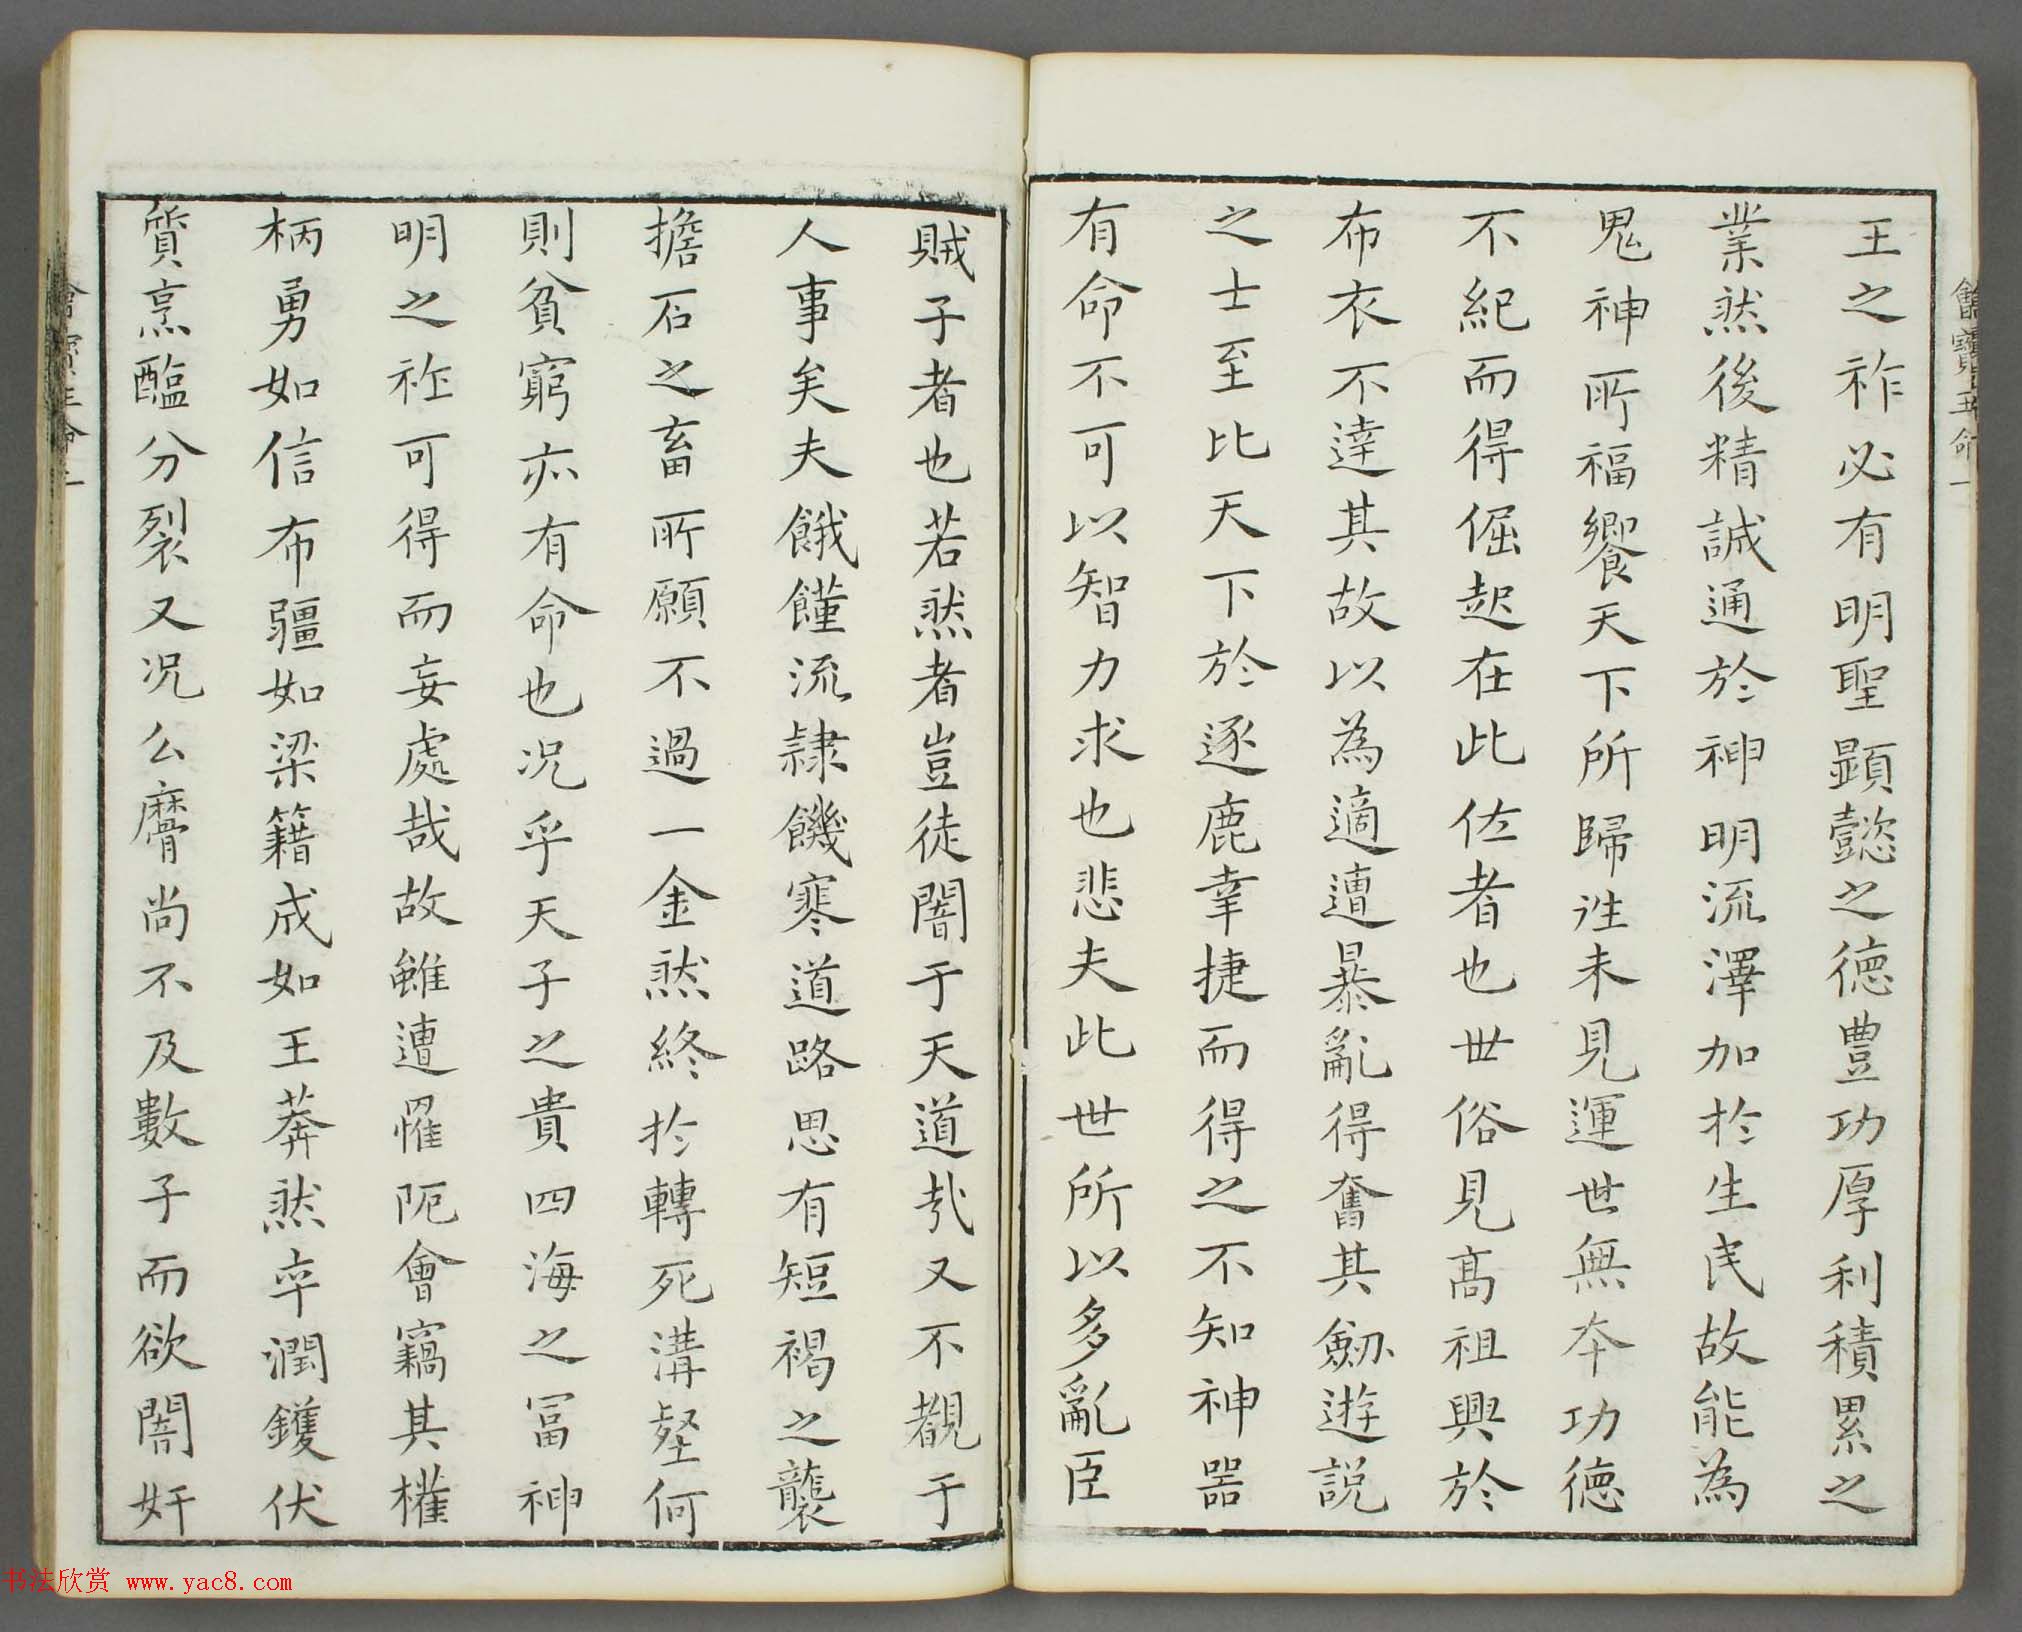 王之祚必有明聖顯懿之德豊功厚利積累之
業然後精誠通於神明流澤加於生民故能為
鬼神所福饗天下所歸往未見運世無本功德
不紀而得倔起在此位者也世俗見髙祖興於
布衣不達其故以為適遭暴亂得奮其劒遊說
之士至比天下於逐鹿幸捷而得之不知神器
有命不可以智力求也悲夫此世所以多亂臣
賊子者也若然者豈徒闇于天道哉又不覩于
人事矣夫餓饉流隷饑寒道路思有短褐之襲
擔石之畜所願不過一金然終於轉死溝壑何
則貧窮亦有命也况乎天子之貴四海之冨神
明之祚可得而妄處哉故雖遭罹阨會竊其權
柄勇如信布疆如梁籍成如王莽然卒潤鑊伏
質烹醢分裂又况么麿尚不及數子而欲闇奸
書法欣赏 www.yac8.com